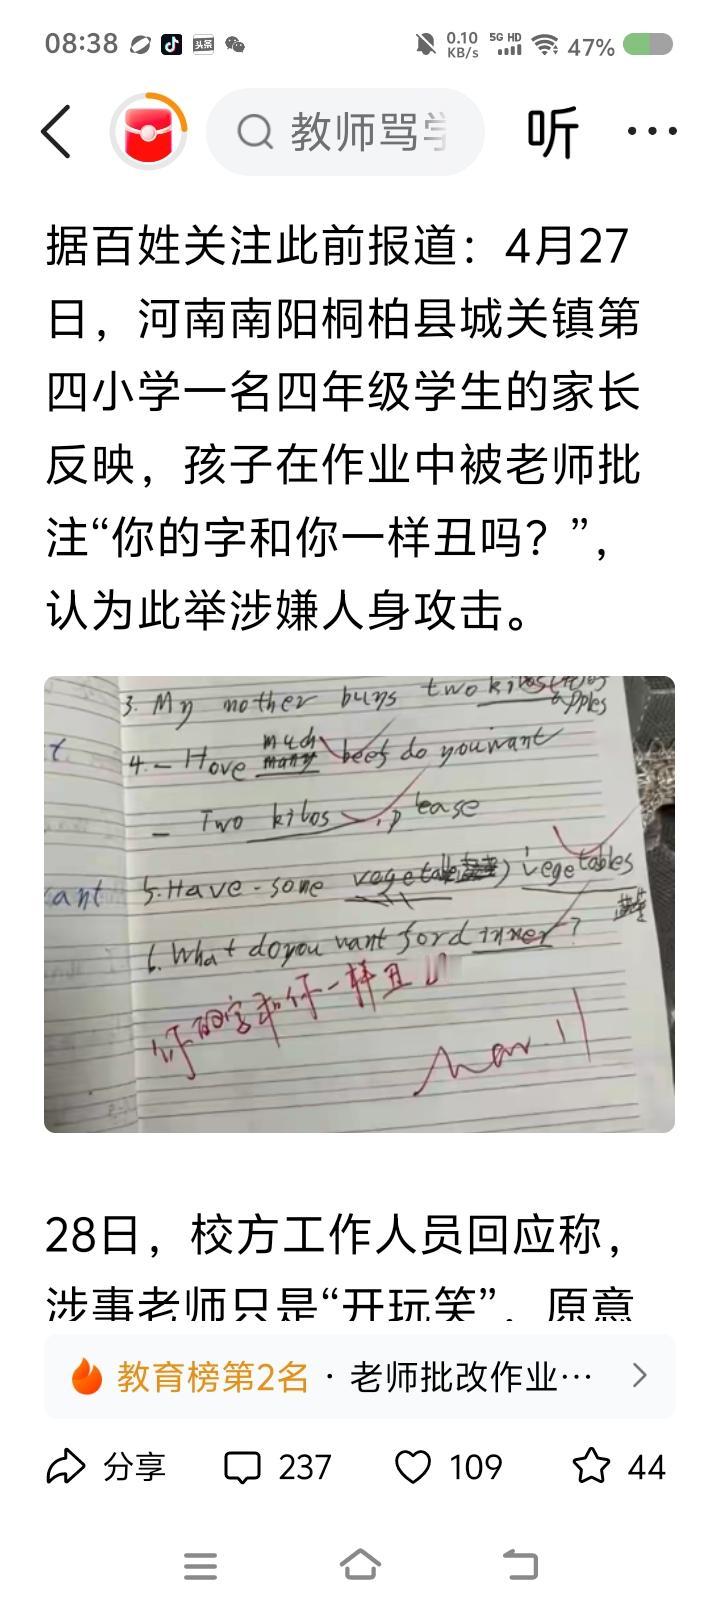 08:38
0.10 KB/s
5G HD
47%
头条
教师骂学
听
据百姓关注此前报道：4月27
日，河南南阳桐柏县城关镇第
四小学一名四年级学生的家长
反映，孩子在作业中被老师批
注“你的字和你一样丑吗？”，
认为此举涉嫌人身攻击。
3. My mother buys two kilos
apples
much
4. - Hove many beef do you want
- Two kilos, please
ant
5. Have some vegetables
6. What do you want for dinner?
你的字和你一样丑吗
28日，校方工作人员回应称，
涉事老师只是“开玩笑”，原意
教育榜第2名 · 老师批改作业…
分享
237
109
44